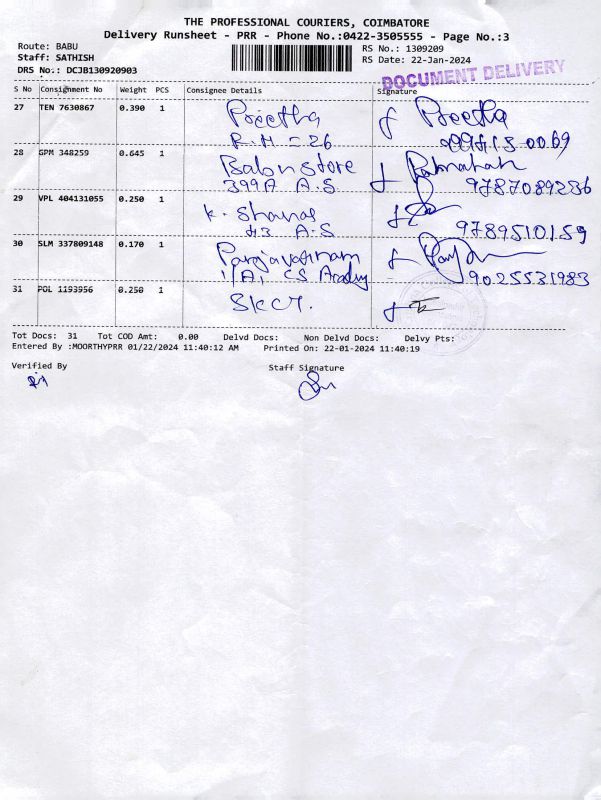 THE PROFESSIONAL COURIERS, COIMBATORE
Delivery Runsheet - PRR - Phone No.:0422-3505555 - Page No.:3
Route: BABU
Staff: SATHISH
DRS No.: DCJB130920903
RS No.: 1309209
RS Date: 22-Jan-2024
DOCUMENT DELIVERY
S No Consignment No Weight PCS Consignee Details Signature
27 TEN 7630867 0.390 1 Preetha Preetha
R.H = 26
28 GPM 348259 0.645 1 Babu store
399A A.S. 9787089236
29 VPL 404131055 0.250 1 K.
43 A.S 9789510159
30 SLM 337809148 0.170 1
1/A, CS Academy 9025531983
31 POL 1193956 0.250 1 SKCT.
Tot Docs: 31 Tot COD Amt: 0.00 Delvd Docs: Non Delvd Docs: Delvy Pts:
Entered By :MOORTHYPRR 01/22/2024 11:40:12 AM Printed On: 22-01-2024 11:40:19
Verified By Staff Signature